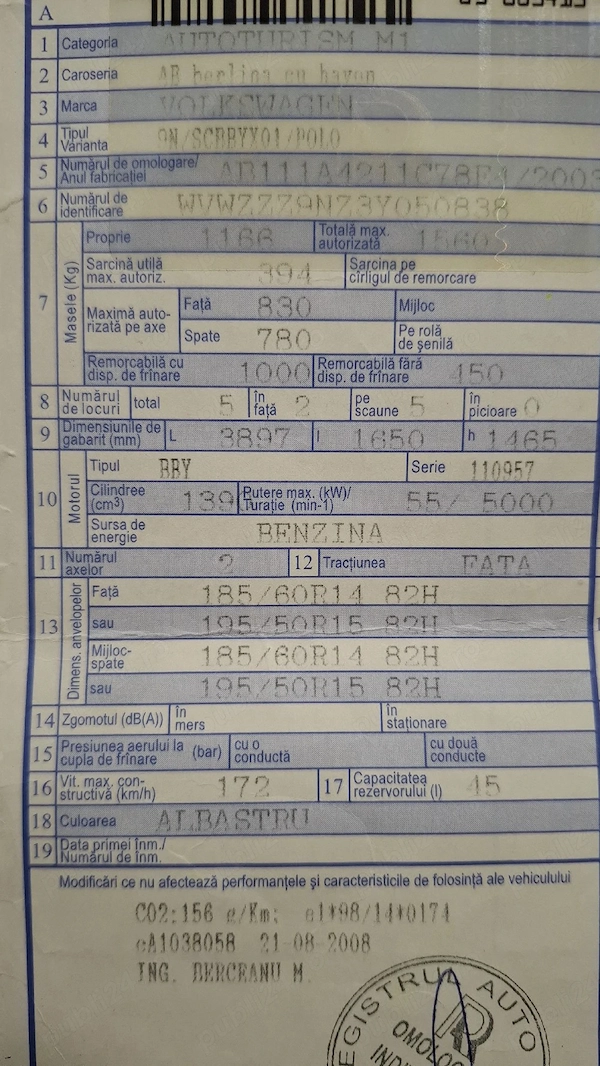 A
1 Categoria AUTOTURISM M1
2 Caroseria AB berlina cu hayon
3 Marca VOLKSWAGEN
4 Tipul Varianta 9N/SCBBYX01/POLO
5 Numărul de omologare/ Anul fabricației AB111A4211C78E4/2003
6 Numărul de identificare WVWZZZ9NZ3Y050838
7 Masele (Kg)
Proprie 1166 Totală max. autorizată 1560
Sarcină utilă max. autoriz. 394 Sarcina pe cîrligul de remorcare
Maximă autorizată pe axe
Față 830 Mijloc
Spate 780 Pe rolă de șenilă
Remorcabilă cu disp. de frînare 1000 Remorcabilă fără disp. de frînare 450
8 Numărul de locuri total 5 în față 2 pe scaune 5 în picioare 0
9 Dimensiunile de gabarit (mm) L 3897 l 1650 h 1465
10 Motorul
Tipul BBY Serie 110957
Cilindree (cm³) 139 Putere max. (kW)/ Turație (min-1) 55/ 5000
Sursa de energie BENZINA
11 Numărul axelor 2 12 Tracțiunea FATA
13 Dimens. anvelopelor
Față 185/60R14 82H
sau 195/50R15 82H
Mijloc-spate 185/60R14 82H
sau 195/50R15 82H
14 Zgomotul (dB(A)) în mers în staționare
15 Presiunea aerului la cupla de frînare (bar) cu o conductă cu două conducte
16 Vit. max. constructivă (km/h) 172 17 Capacitatea rezervorului (l) 45
18 Culoarea ALBASTRU
19 Data primei înm./ Numărul de înm.
Modificări ce nu afectează performanțele și caracteristicile de folosință ale vehiculului
CO2:156 g/Km; e1*98/14*0174
cA1038058 21-08-2008
ING. BERCEANU M.
REGISTRUL AUTO
OMOLOG